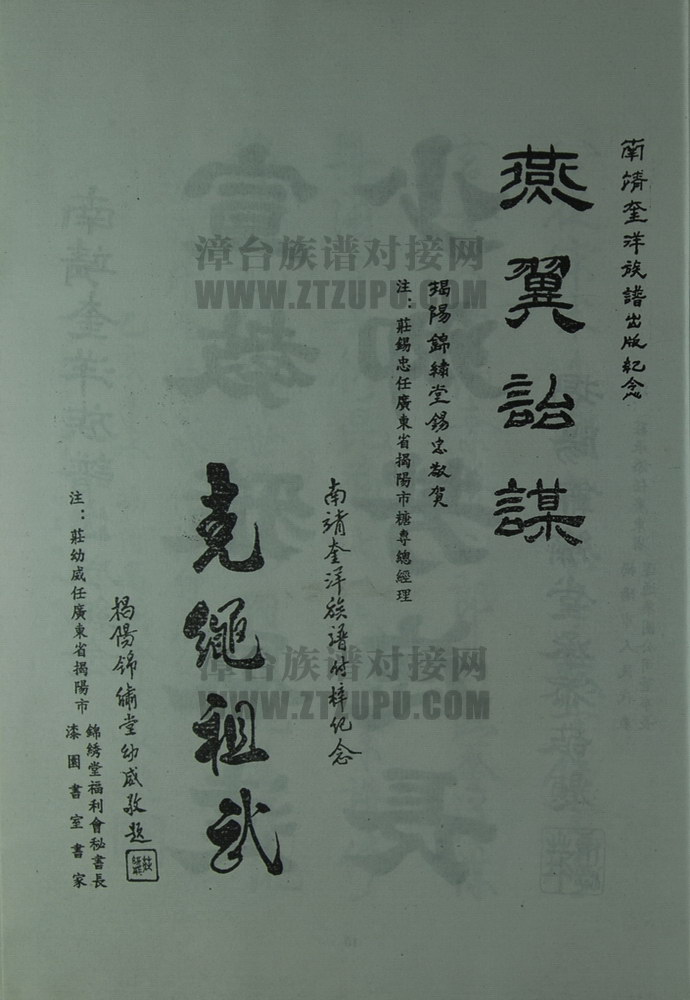 南靖奎洋族譜出版紀念
燕翼詒謀
揭陽錦繡堂錫忠敬賀
注：莊錫忠任廣東省揭陽市糖專總經理
南靖奎洋族譜付梓紀念
克繩祖武
揭陽錦繡堂幼威敬題
注：莊幼威任廣東省揭陽市
錦綉堂福利會秘書長
漆園書室書家
漳台族谱对接网
WWW.ZTZUPU.COM
漳台族谱对接网
WWW.ZTZUPU.COM